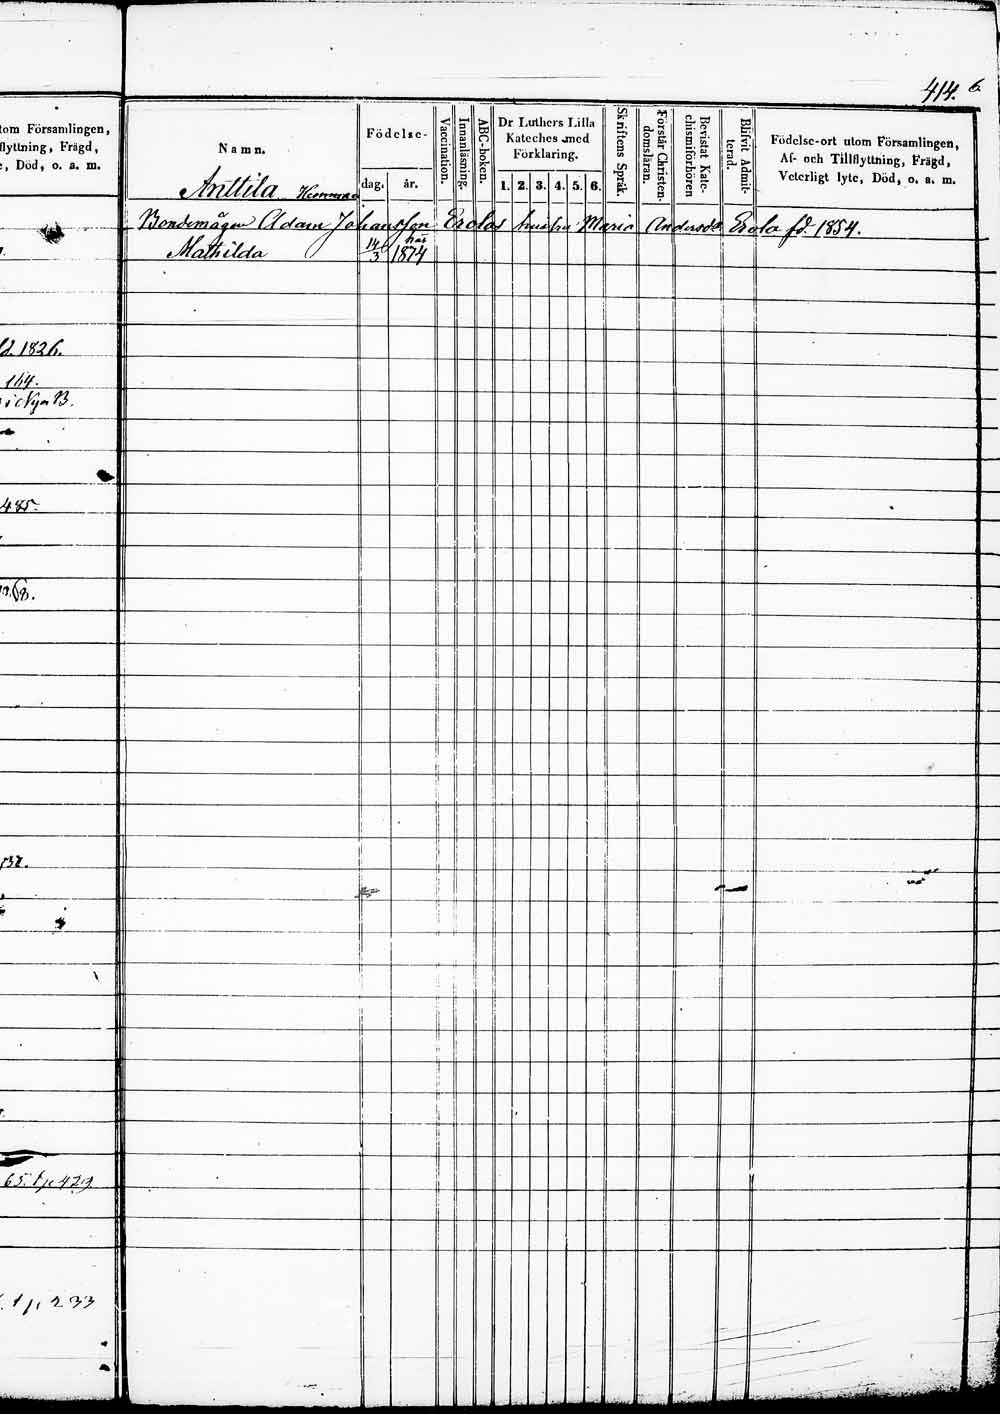 414. 6.
tom Församlingen,
flyttning, Frägd,
e, Död, o. a. m.
d. 1826.
164.
i Nya B.
485.
68.
537.
65. t p. 429
t p. 233
Namn.
Födelse-
dag. år.
Vaccination.
Innanläsning.
ABC-boken.
Dr Luthers Lilla
Kateches med
Förklaring.
1. 2. 3. 4. 5. 6.
Skriftens Språk.
Förstår Christen-
domsläran.
Bevistat Kate-
chismiförhören
Blifvit Admit-
terad.
Födelse-ort utom Församlingen,
Af- och Tillflyttning, Frägd,
Veterligt lyte, Död, o. a. m.
Anttila
Bondemågen Adam Johansson Erolas hustru Maria Andersdr Erola fd. 1854.
Mathilda 14/3 1874